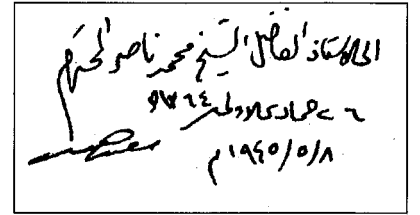 الى الاستاذ الفاضل الشيخ محمد ناصر المحترم
٢٦ جمادى الاولى ١٣٦٤
١٩٤٥/٥/٨م